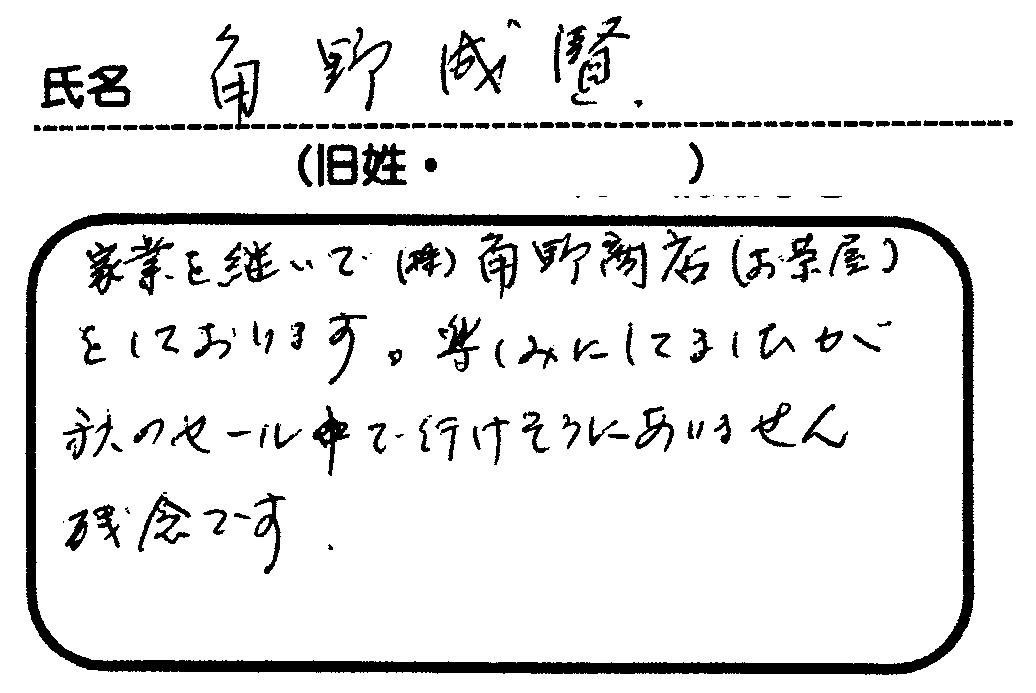 氏名 角野成賢.
(旧姓・ )
家業を継いで(株)角野商店(お茶屋)
をしております。楽しみにしてましたが
秋のセール中で行けそうにありません
残念です.